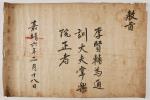 敎旨
李賢輔為通
訓大夫掌樂
院正者
嘉靖六年二月十八日